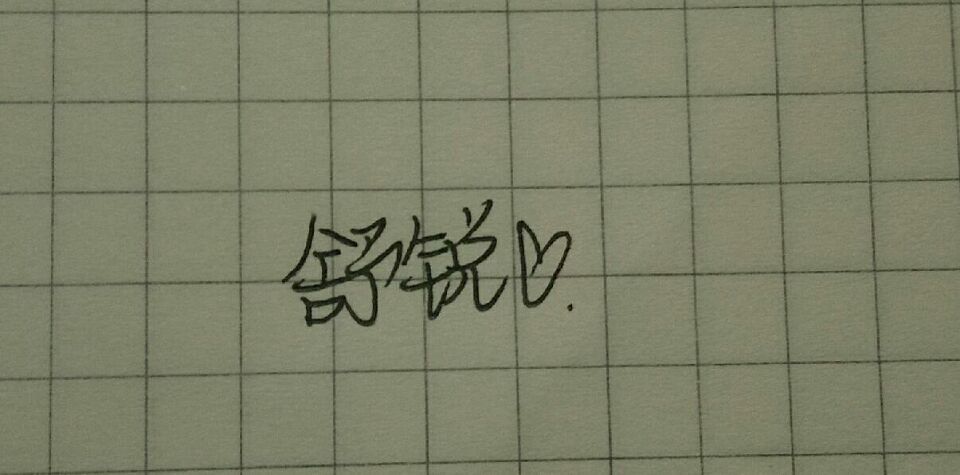 舒锐♡.